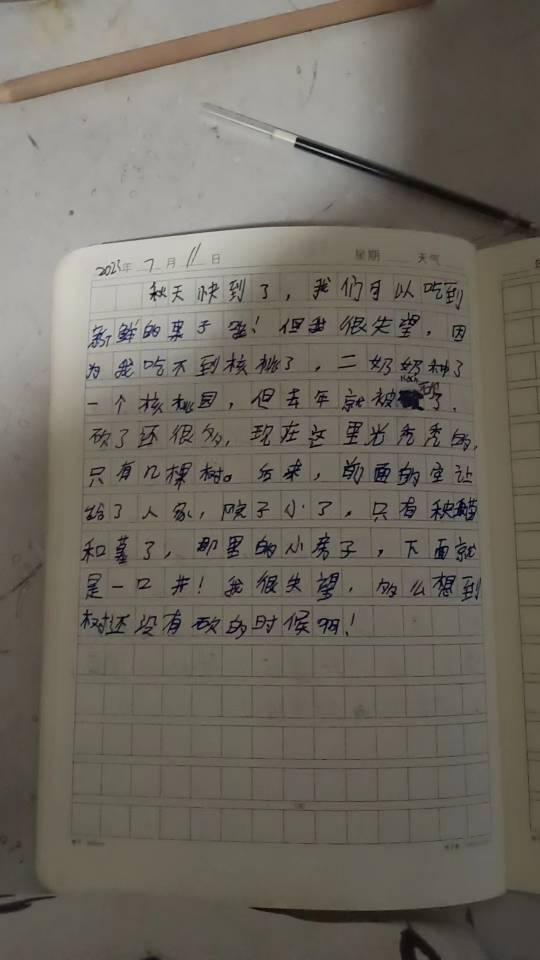 2023年 7 月 11 日 星期 天气
秋天快到了，我们可以吃到
新鲜的果子啦！但我很失望，因
为我吃不到核桃了，二奶奶种了
一个核桃园，但去年就被砍了，
砍了还很多，现在这里光秃秃的，
只有几棵树。后来，前面的空让
给了人家，院子小了，只有
和墓了，那里的小房子，下面就
是一口井！我很失望，多么想到
树还没有砍的时候啊！